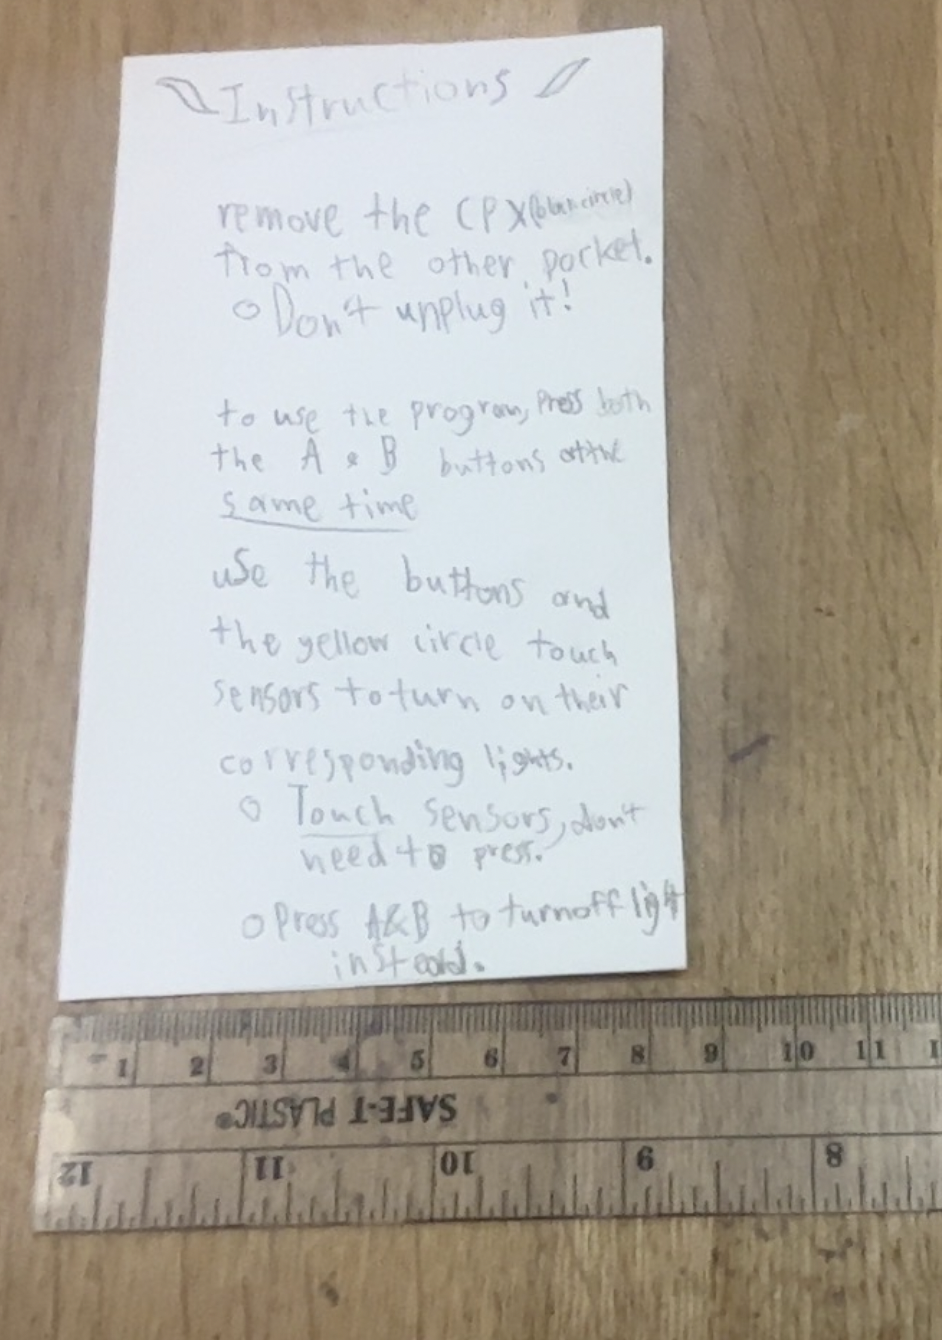 Instructions
remove the CPX (black circle)
from the other pocket.
o Don't unplug it!
to use the program, press both
the A & B buttons at the
same time
use the buttons and
the yellow circle touch
sensors to turn on their
corresponding lights.
o Touch sensors, don't
need to press.
o Press A&B to turn off light
instead.
1 2 3 4 5 6 7 8 9 10 11 1
SAFE-T PLASTIC®
12 11 10 9 8